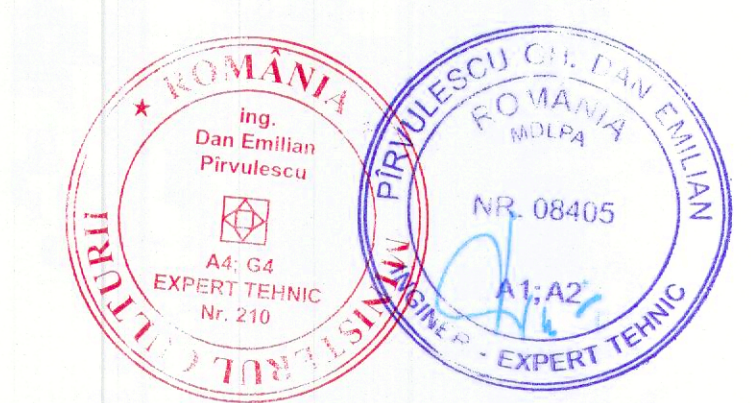 ★ ROMÂNIA ★
MINISTERUL CULTURII
ing.
Dan Emilian
Pîrvulescu
A4; G4
EXPERT TEHNIC
Nr. 210
PÎRVULESCU GH. DAN EMILIAN
INGINER - EXPERT TEHNIC
ROMÂNIA
MDLPA
NR. 08405
A1; A2